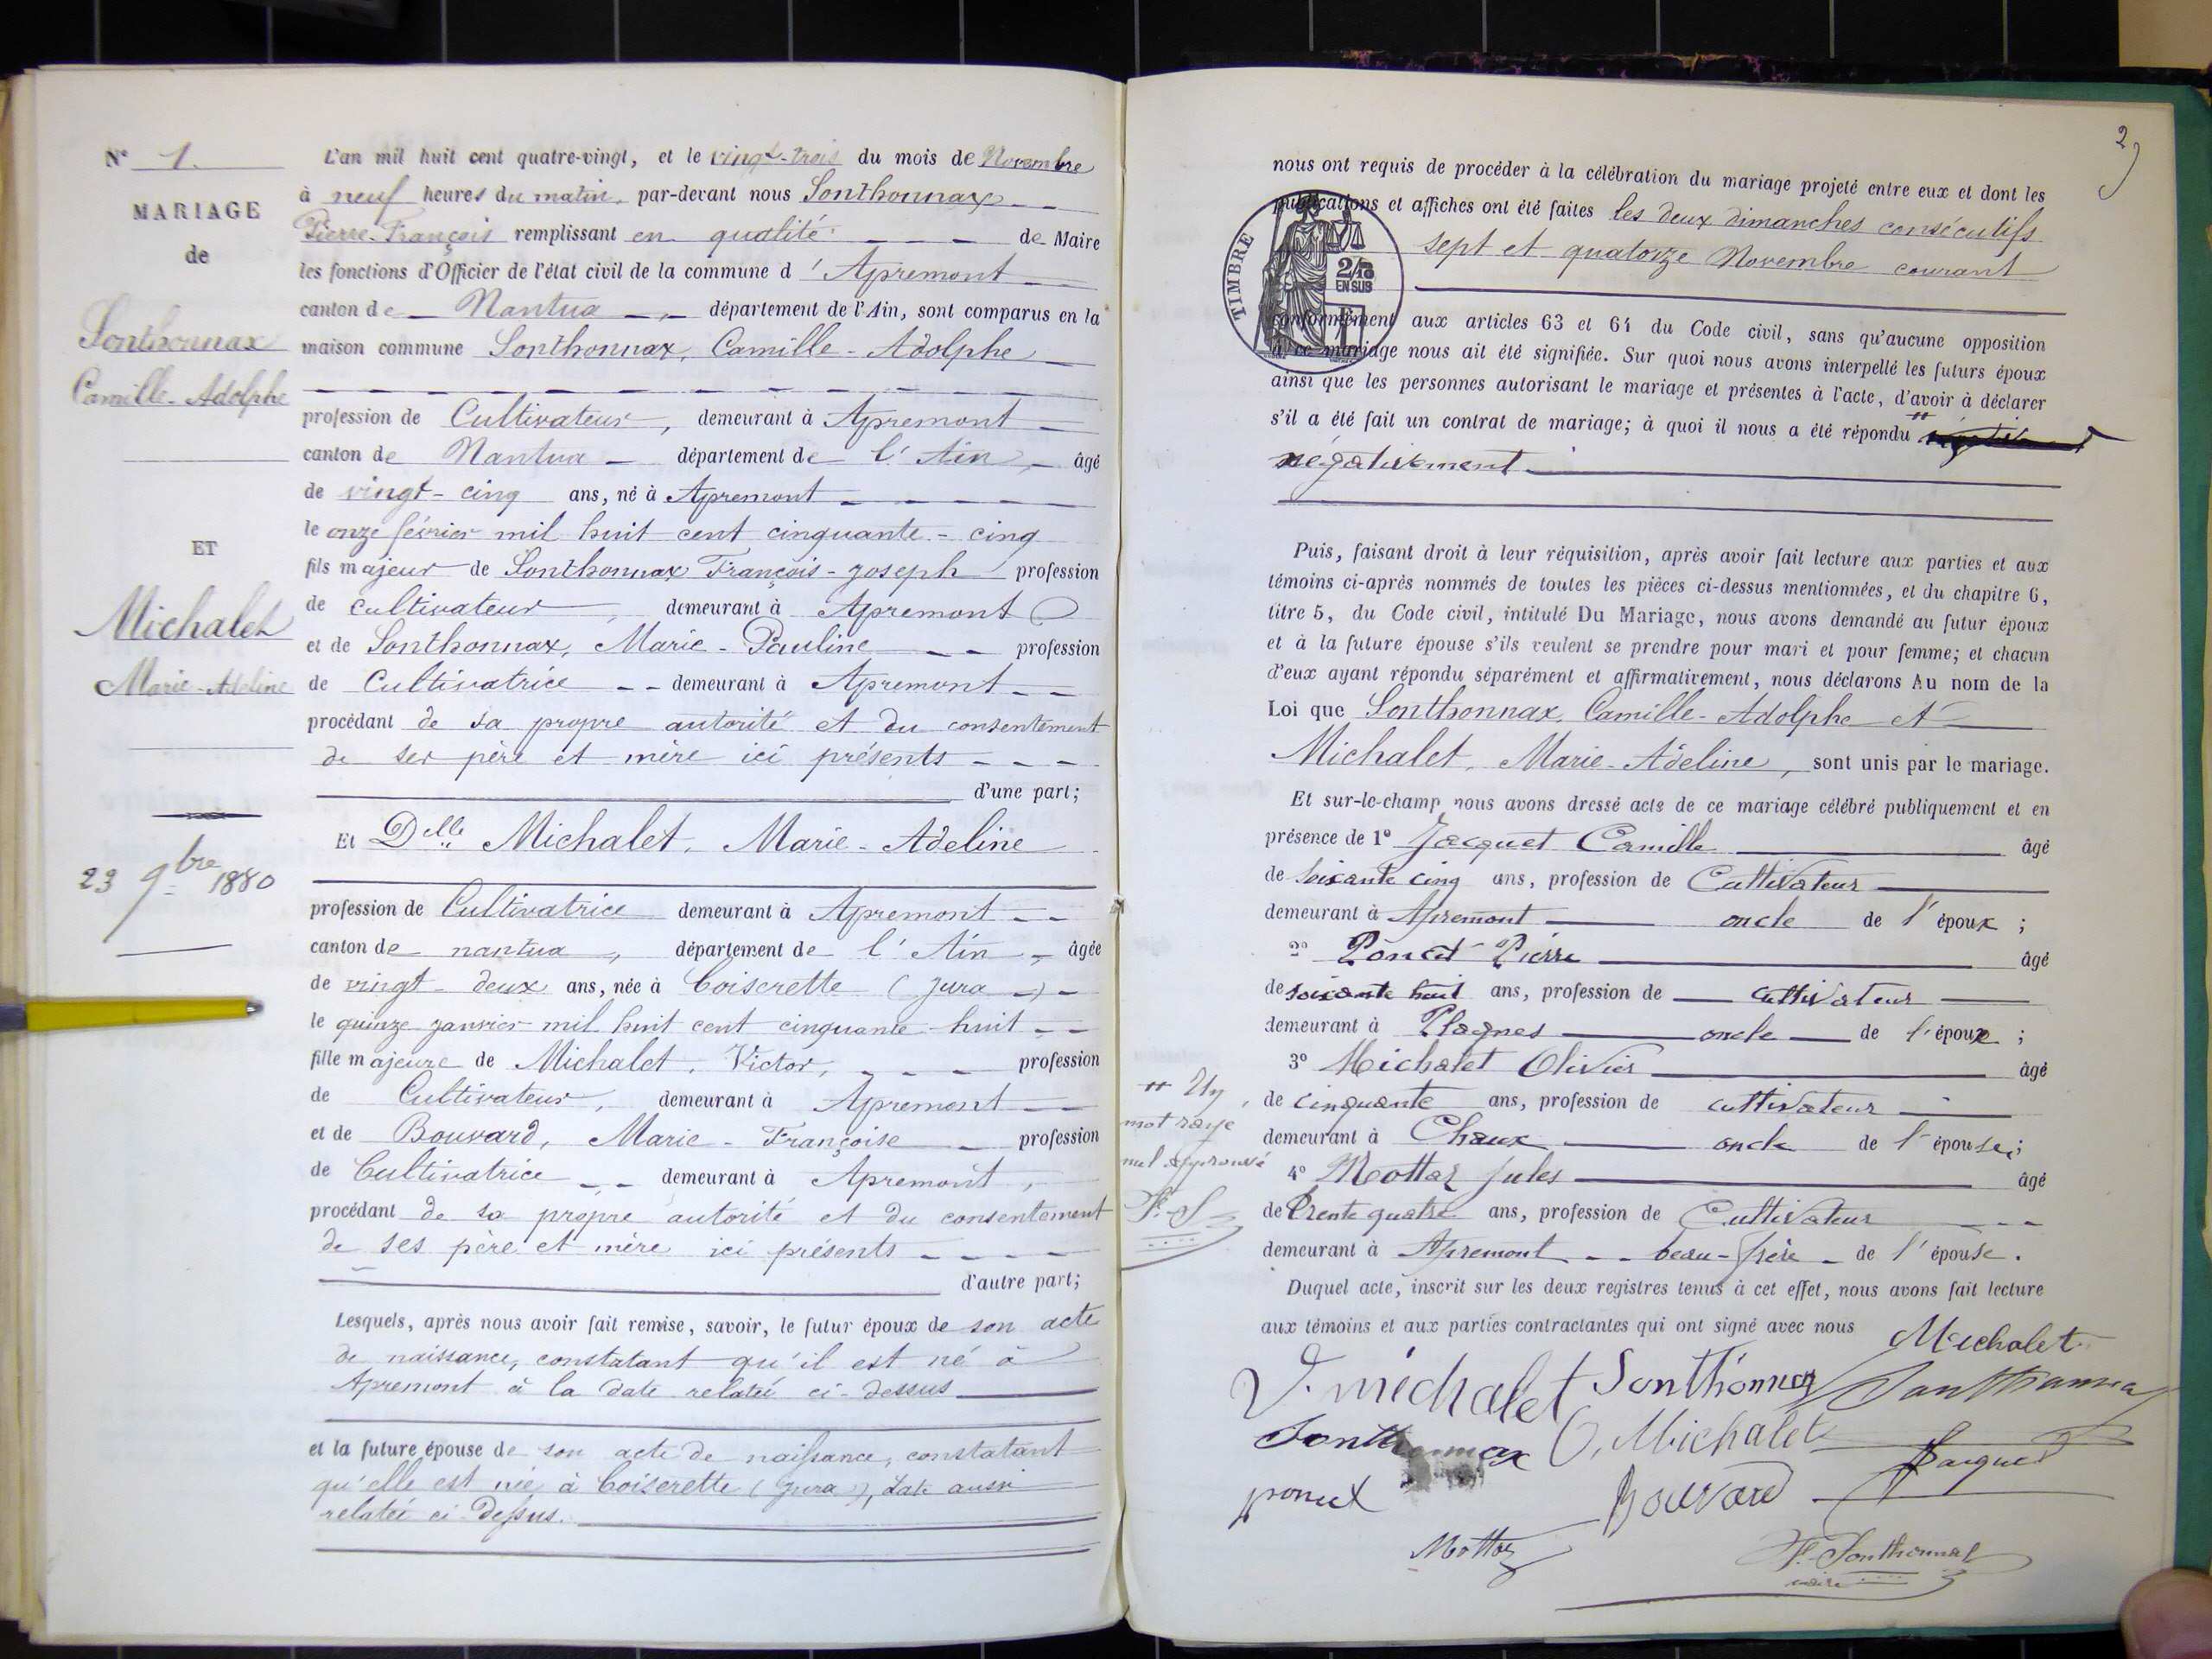 N° 1.
MARIAGE
de
Sonthonnax
Camille-Adolphe
ET
Michalet
Marie-Adeline
23 9bre 1880
L'an mil huit cent quatre-vingt, et le vingt-trois du mois de Novembre
à neuf heures du matin, par-devant nous Sonthonnax
Pierre-François remplissant en qualité de Maire
les fonctions d'Officier de l'état civil de la commune d'Apremont
canton de Nantua, département de l'Ain, sont comparus en la
maison commune Sonthonnax, Camille-Adolphe
profession de Cultivateur, demeurant à Apremont
canton de Nantua département de l'Ain, âgé
de vingt-cinq ans, né à Apremont
le onze février mil huit cent cinquante-cinq
fils majeur de Sonthonnax François-Joseph profession
de cultivateur, demeurant à Apremont
et de Sonthonnax, Marie-Pauline profession
de Cultivatrice demeurant à Apremont
procédant de sa propre autorité et du consentement
de ses père et mère ici présents
d'une part;
Et Delle Michalet, Marie-Adeline
profession de Cultivatrice demeurant à Apremont
canton de nantua, département de l'Ain, âgée
de vingt-deux ans, née à Coiserette (Jura)
le quinze janvier mil huit cent cinquante-huit
fille majeure de Michalet, Victor, profession
de Cultivateur, demeurant à Apremont
et de Bouvard, Marie-Françoise profession
de Cultivatrice demeurant à Apremont,
procédant de sa propre autorité et du consentement
de ses père et mère ici présents
d'autre part;
Lesquels, après nous avoir fait remise, savoir, le futur époux de son acte
de naissance, constatant qu'il est né à
Apremont à la date relatée ci-dessus
et la future épouse de son acte de naissance, constatant
qu'elle est née à Coiserette (Jura), date aussi
relatée ci-dessus.
2
nous ont requis de procéder à la célébration du mariage projeté entre eux et dont les
publications et affiches ont été faites les deux dimanches consécutifs
sept et quatorze Novembre courant
TIMBRE
2/10
EN SUS
conformément aux articles 63 et 64 du Code civil, sans qu'aucune opposition
à ce mariage nous ait été signifiée. Sur quoi nous avons interpellé les futurs époux
ainsi que les personnes autorisant le mariage et présentes à l'acte, d'avoir à déclarer
s'il a été fait un contrat de mariage; à quoi il nous a été répondu
négativement
Puis, faisant droit à leur réquisition, après avoir fait lecture aux parties et aux
témoins ci-après nommés de toutes les pièces ci-dessus mentionnées, et du chapitre 6,
titre 5, du Code civil, intitulé Du Mariage, nous avons demandé au futur époux
et à la future épouse s'ils veulent se prendre pour mari et pour femme; et chacun
d'eux ayant répondu séparément et affirmativement, nous déclarons Au nom de la
Loi que Sonthonnax, Camille-Adolphe et
Michalet, Marie-Adeline, sont unis par le mariage.
Et sur-le-champ nous avons dressé acte de ce mariage célébré publiquement et en
présence de 1° Jacquet Camille âgé
de soixante cinq ans, profession de Cultivateur
demeurant à Apremont oncle de l'époux;
2° Poncet Pierre âgé
de soixante huit ans, profession de cultivateur
demeurant à Plagnes oncle de l'époux;
3° Michalet Olivier âgé
de cinquante ans, profession de cultivateur
demeurant à Chaux oncle de l'épouse;
4° Mottaz Jules âgé
de trente quatre ans, profession de Cultivateur
demeurant à Apremont beau-frère de l'épouse.
Un
mot rayé
nul approuvé
P. S
Duquel acte, inscrit sur les deux registres tenus à cet effet, nous avons fait lecture
aux témoins et aux parties contractantes qui ont signé avec nous Michalet
V. Michalet Sonthonnax Sonthonnax
Sonthonnax O. Michalet Jacquet
poncet Bouvard
Mottaz P. Sonthonnax
maire